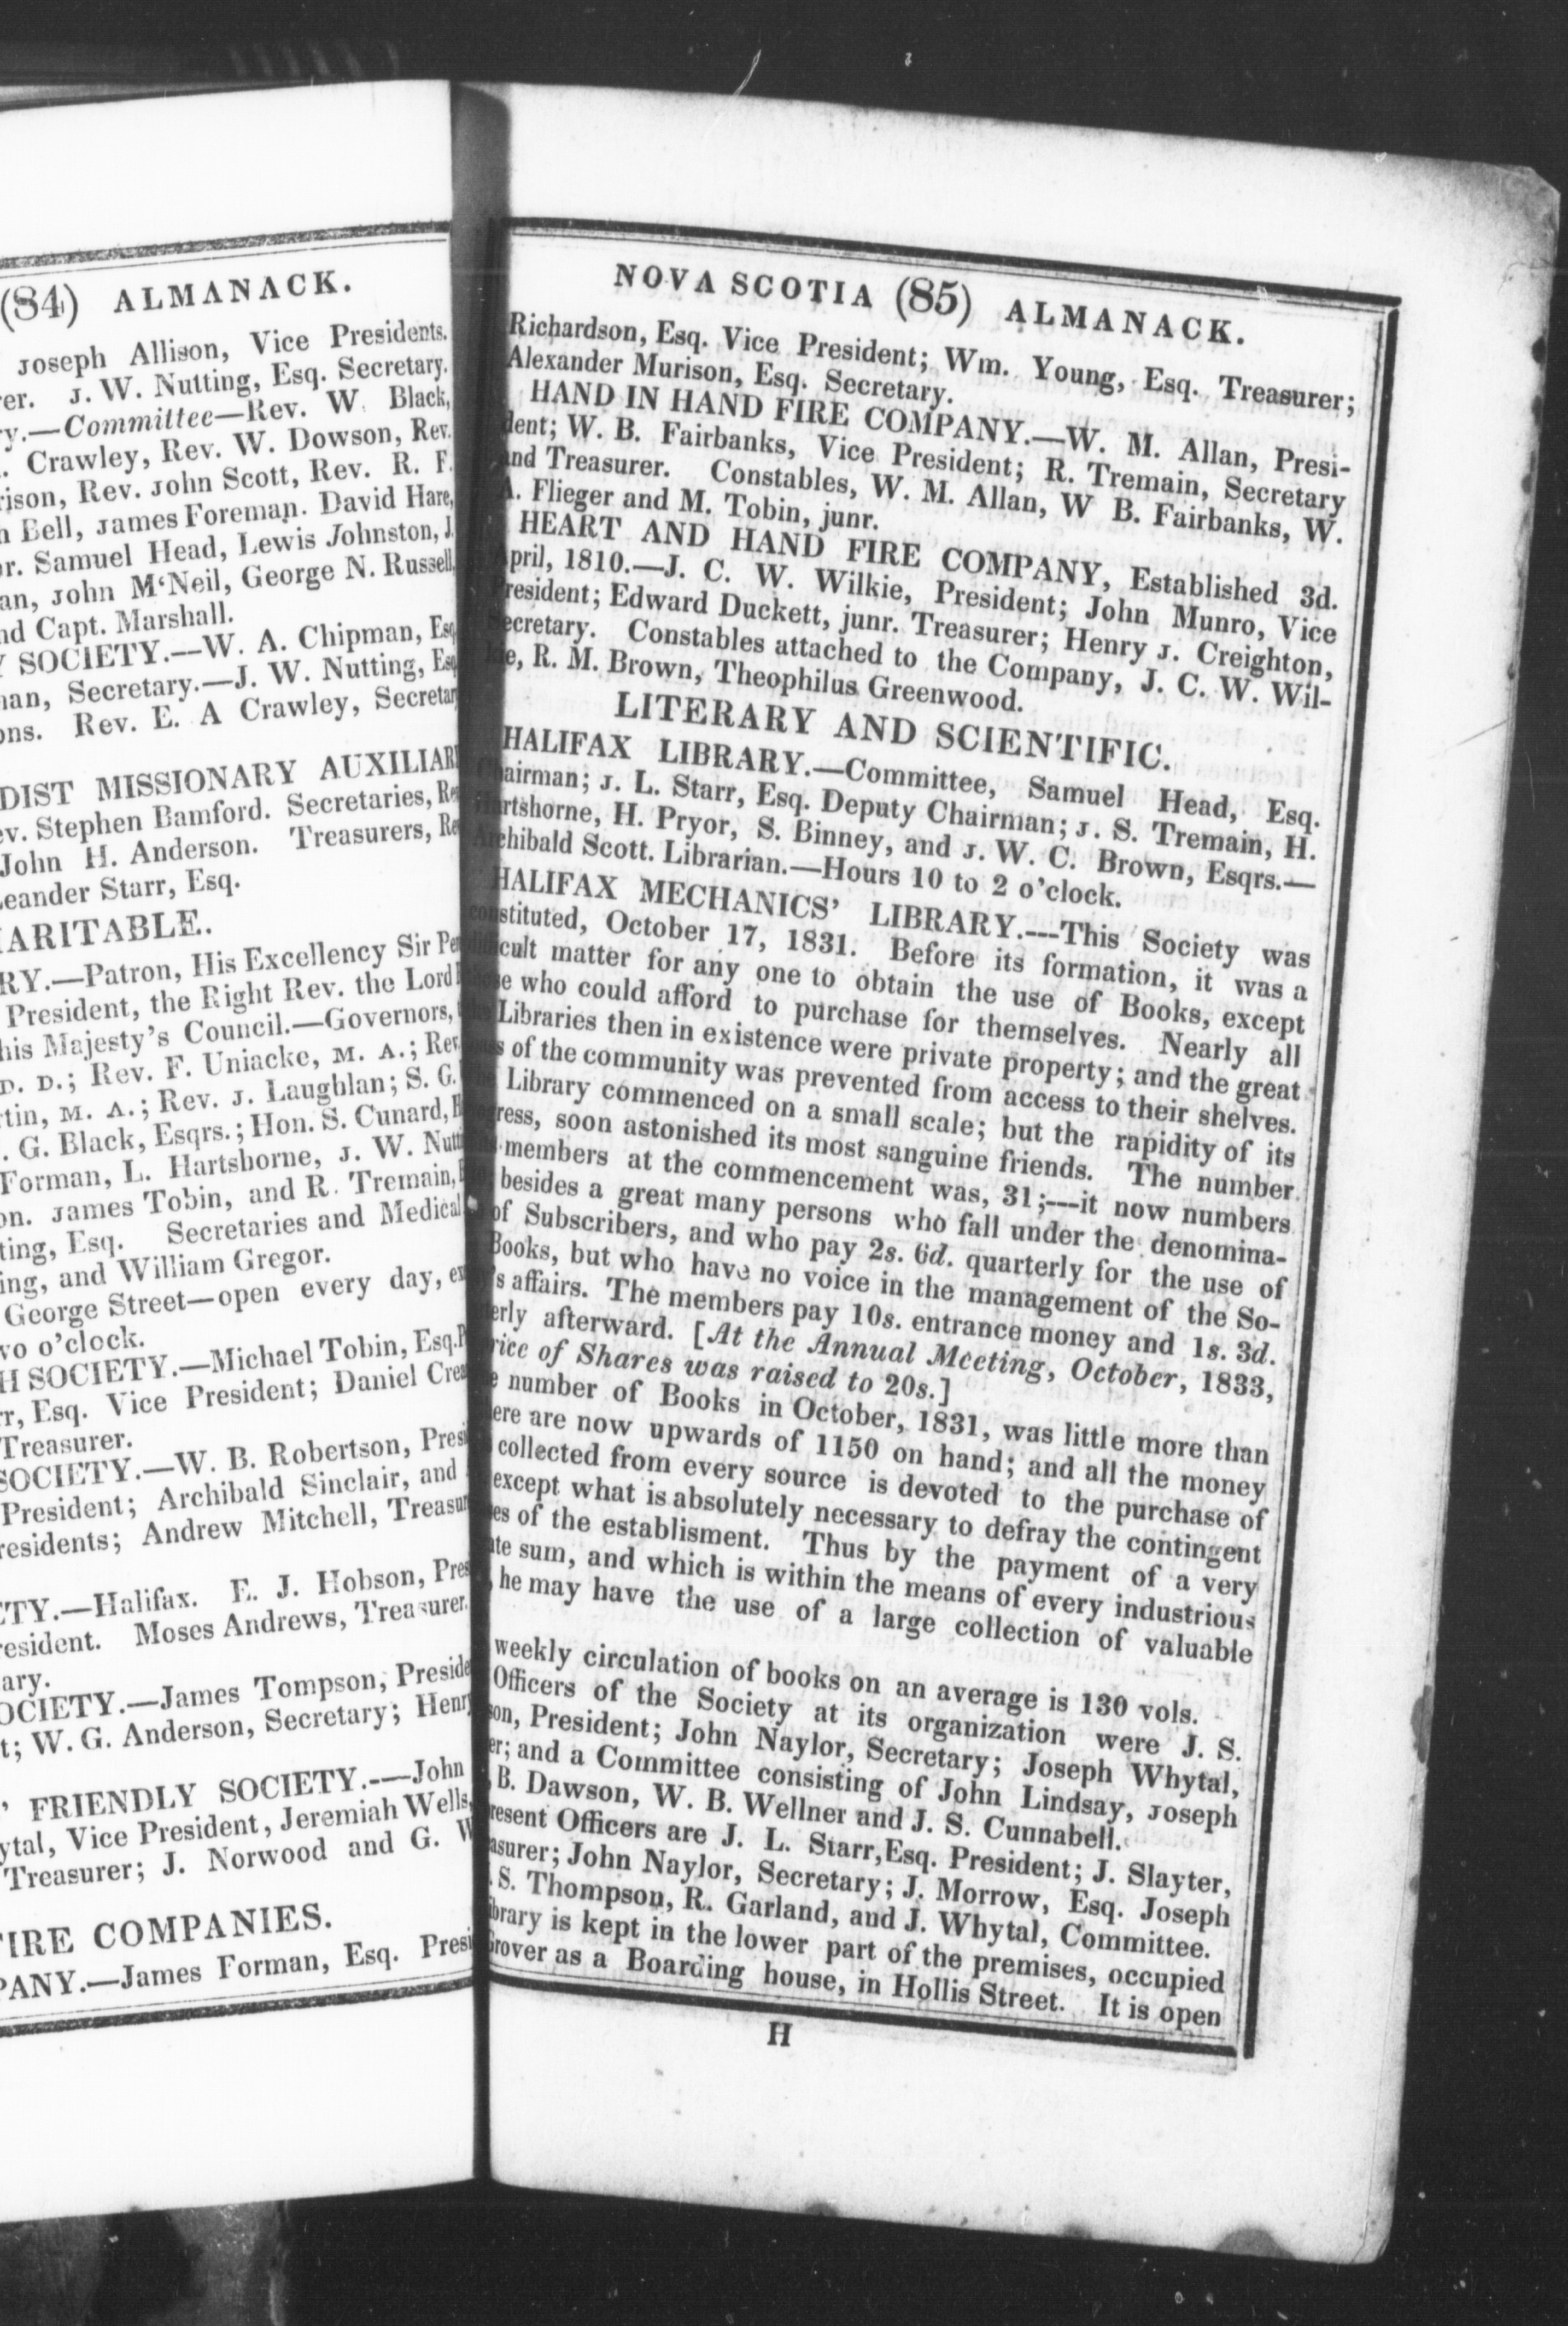 (84) ALMANACK.
Joseph Allison, Vice Presidents.
J. W. Nutting, Esq. Secretary.
Committee—Rev. W. Black,
Crawley, Rev. W. Dowson, Rev.
Rev. John Scott, Rev. R. F.
Bell, James Foreman. David Hare,
Samuel Head, Lewis Johnston, J.
John M'Neil, George N. Russell,
Capt. Marshall.
SOCIETY.—W. A. Chipman, Esq
Secretary.—J. W. Nutting, Esq
Rev. E. A Crawley,
MISSIONARY
Stephen Bamford. Secretaries,
John H. Anderson. Treasurers,
Starr, Esq.
Patron, His Excellency Sir
President, the Right Rev. the Lord
his Majesty's Council.—Governors,
D. D.; Rev. F. Uniacke, M. A.; Rev.
M. A.; Rev. J. Laughlan; S. G.
G. Black, Esqrs.; Hon. S. Cunard,
Forman, L. Hartshorne, J. W.
James Tobin, and R. Tremain,
Esq. Secretaries and Medical
and William Gregor.
George Street—open every day,
o'clock.
SOCIETY.—Michael Tobin, Esq.
Esq. Vice President; Daniel
Treasurer.
SOCIETY.—W. B. Robertson,
President; Archibald Sinclair, and
Andrew Mitchell,
Halifax. E. J. Hobson,
Moses Andrews, Treasurer.
James Tompson,
W. G. Anderson, Secretary; Henry
FRIENDLY SOCIETY.—John
Vice President, Jeremiah Wells,
Treasurer; J. Norwood and G.
COMPANIES.
James Forman, Esq.
NOVA SCOTIA (85) ALMANACK.
Richardson, Esq. Vice President; Wm. Young, Esq. Treasurer;
Alexander Murison, Esq. Secretary.
HAND IN HAND FIRE COMPANY.—W. M. Allan, Presi-
dent; W. B. Fairbanks, Vice President; R. Tremain, Secretary
and Treasurer. Constables, W. M. Allan, W B. Fairbanks, W.
A. Flieger and M. Tobin, junr.
HEART AND HAND FIRE COMPANY, Established 3d.
April, 1810.—J. C. W. Wilkie, President; John Munro, Vice
President; Edward Duckett, junr. Treasurer; Henry J. Creighton,
Secretary. Constables attached to the Company, J. C. W. Wil-
kie, R. M. Brown, Theophilus Greenwood.
LITERARY AND SCIENTIFIC.
HALIFAX LIBRARY.—Committee, Samuel Head, Esq.
Chairman; J. L. Starr, Esq. Deputy Chairman; J. S. Tremain, H.
Hartshorne, H. Pryor, S. Binney, and J. W. C. Brown, Esqrs.—
Archibald Scott. Librarian.—Hours 10 to 2 o'clock.
HALIFAX MECHANICS' LIBRARY.---This Society was
constituted, October 17, 1831. Before its formation, it was a
difficult matter for any one to obtain the use of Books, except
those who could afford to purchase for themselves. Nearly all
the Libraries then in existence were private property; and the great
of the community was prevented from access to their shelves.
Library commenced on a small scale; but the rapidity of its
progress, soon astonished its most sanguine friends. The number
members at the commencement was, 31;---it now numbers
besides a great many persons who fall under the denomina-
of Subscribers, and who pay 2s. 6d. quarterly for the use of
Books, but who have no voice in the management of the So-
affairs. The members pay 10s. entrance money and 1s. 3d.
afterward. [At the Annual Meeting, October, 1833,
of Shares was raised to 20s.]
number of Books in October, 1831, was little more than
are now upwards of 1150 on hand; and all the money
collected from every source is devoted to the purchase of
except what is absolutely necessary to defray the contingent
of the establisment. Thus by the payment of a very
sum, and which is within the means of every industrious
he may have the use of a large collection of valuable
weekly circulation of books on an average is 130 vols.
Officers of the Society at its organization were J. S.
President; John Naylor, Secretary; Joseph Whytal,
and a Committee consisting of John Lindsay, Joseph
B. Dawson, W. B. Wellner and J. S. Cunnabell.
Officers are J. L. Starr,Esq. President; J. Slayter,
John Naylor, Secretary; J. Morrow, Esq. Joseph
S. Thompson, R. Garland, and J. Whytal, Committee.
is kept in the lower part of the premises, occupied
Grover as a Boarding house, in Hollis Street. It is open
H